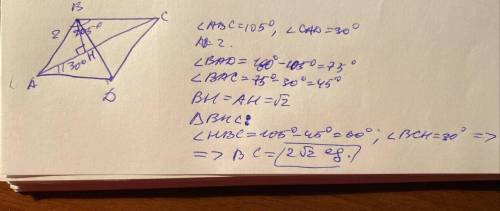 B
C
2
105°
H
30°
A
D
∠ABC=105°, ∠CAD=30°
∠BAD=180°-105°=75°
∠BAC=75°-30°=45°
BH=AH=√2
ΔBHC:
∠HBC=105°-45°=60°; ∠BCH=30° =>
=> BC=2√2 ед.